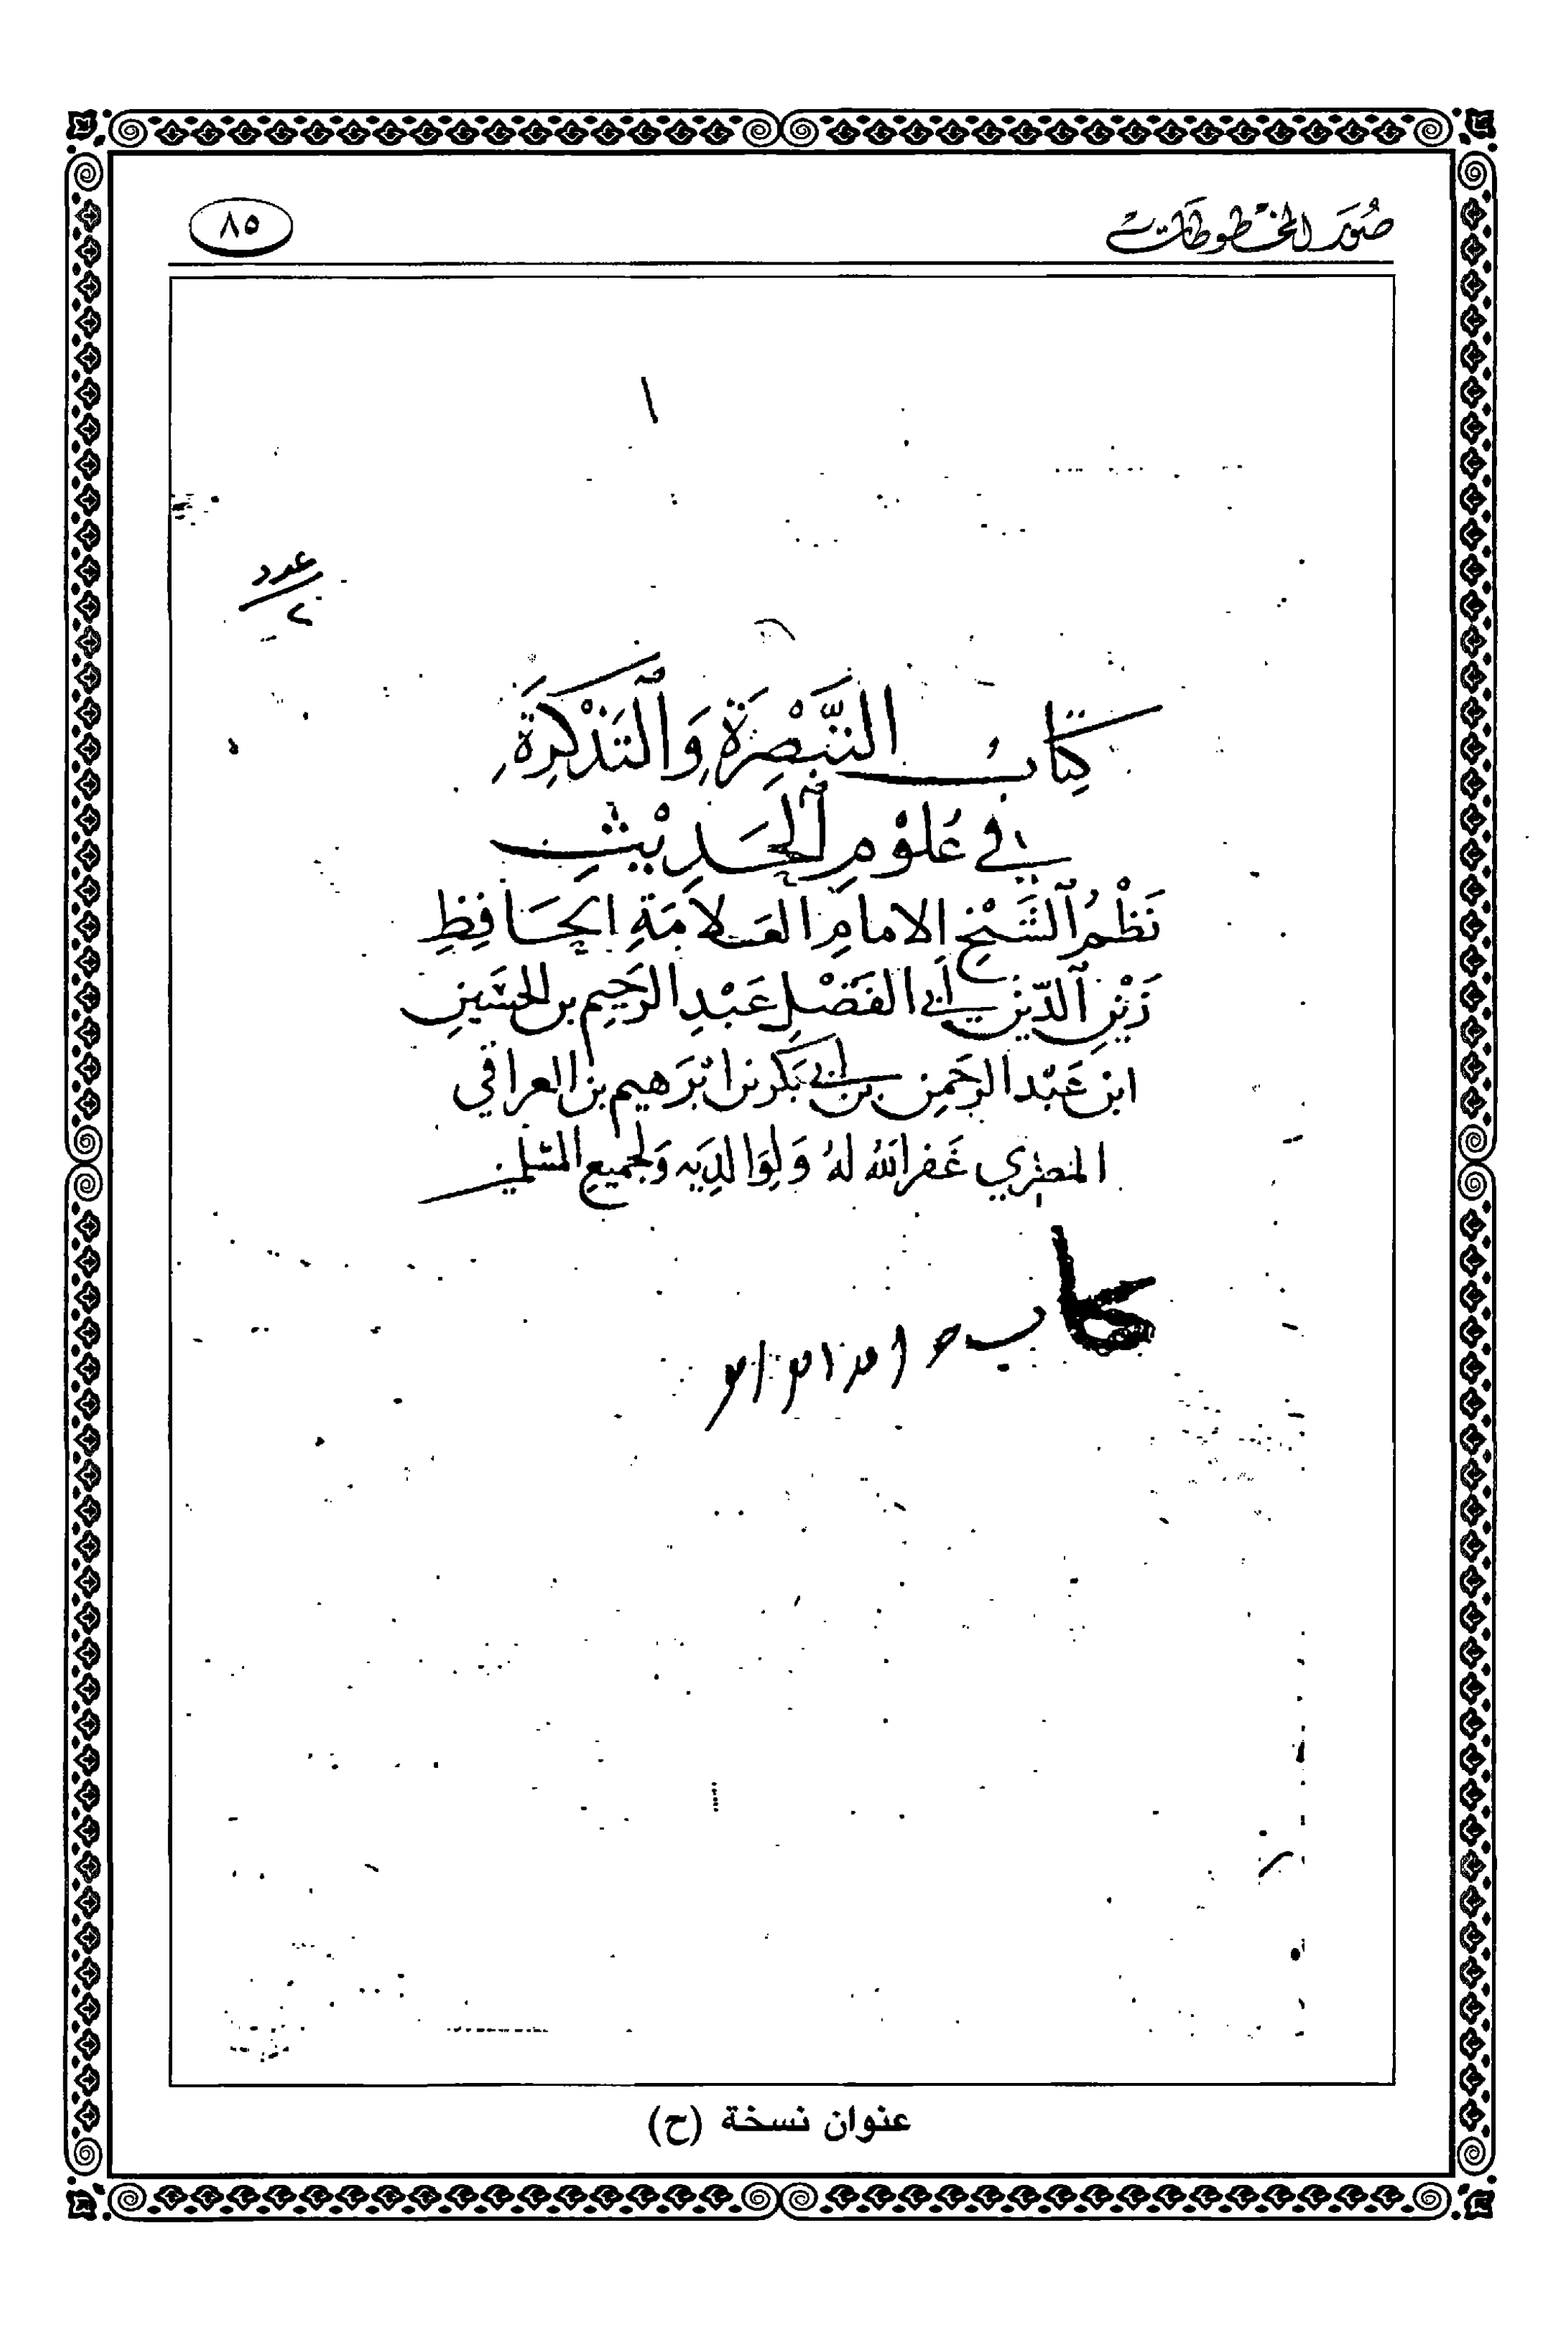 صُوَر المخطوطات
٨٥
١
عدد
٢
كِتَابُ التَّبْصِرَةِ وَٱلتَذْكِرَةِ
فِي عُلُوْمِ ٱلْحَدِيْثِ
نَظْمُ ٱلشَّيْخِ الامامِ العَلامَةِ الحَافِظِ
زَيْنِ ٱلدِّيْنِ أَبي الفَضْلِ عَبْدِ الرَحِيمِ بن الحسَينِ
ابن عَبْد الرحمن بن ابي بَكر بن ابْرَهيم بن العراقي
المصْري غَفر اللهُ لهُ وَلِوَالدِيَه وَلجميعِ المسْلمين
كتاب
عنوان نسخة (ح)